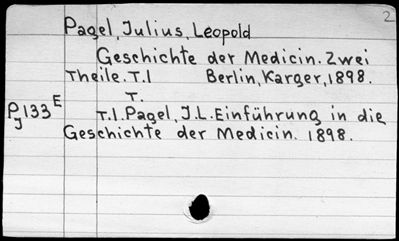 2
Pagel, Julius, Leopold
Geschichte der Medicin. Zwei
Theile. T.1 Berlin, Karger, 1898.
T.
PJ 133 E T.1. Pagel, J.L. Einführung in die
Geschichte der Medicin. 1898.